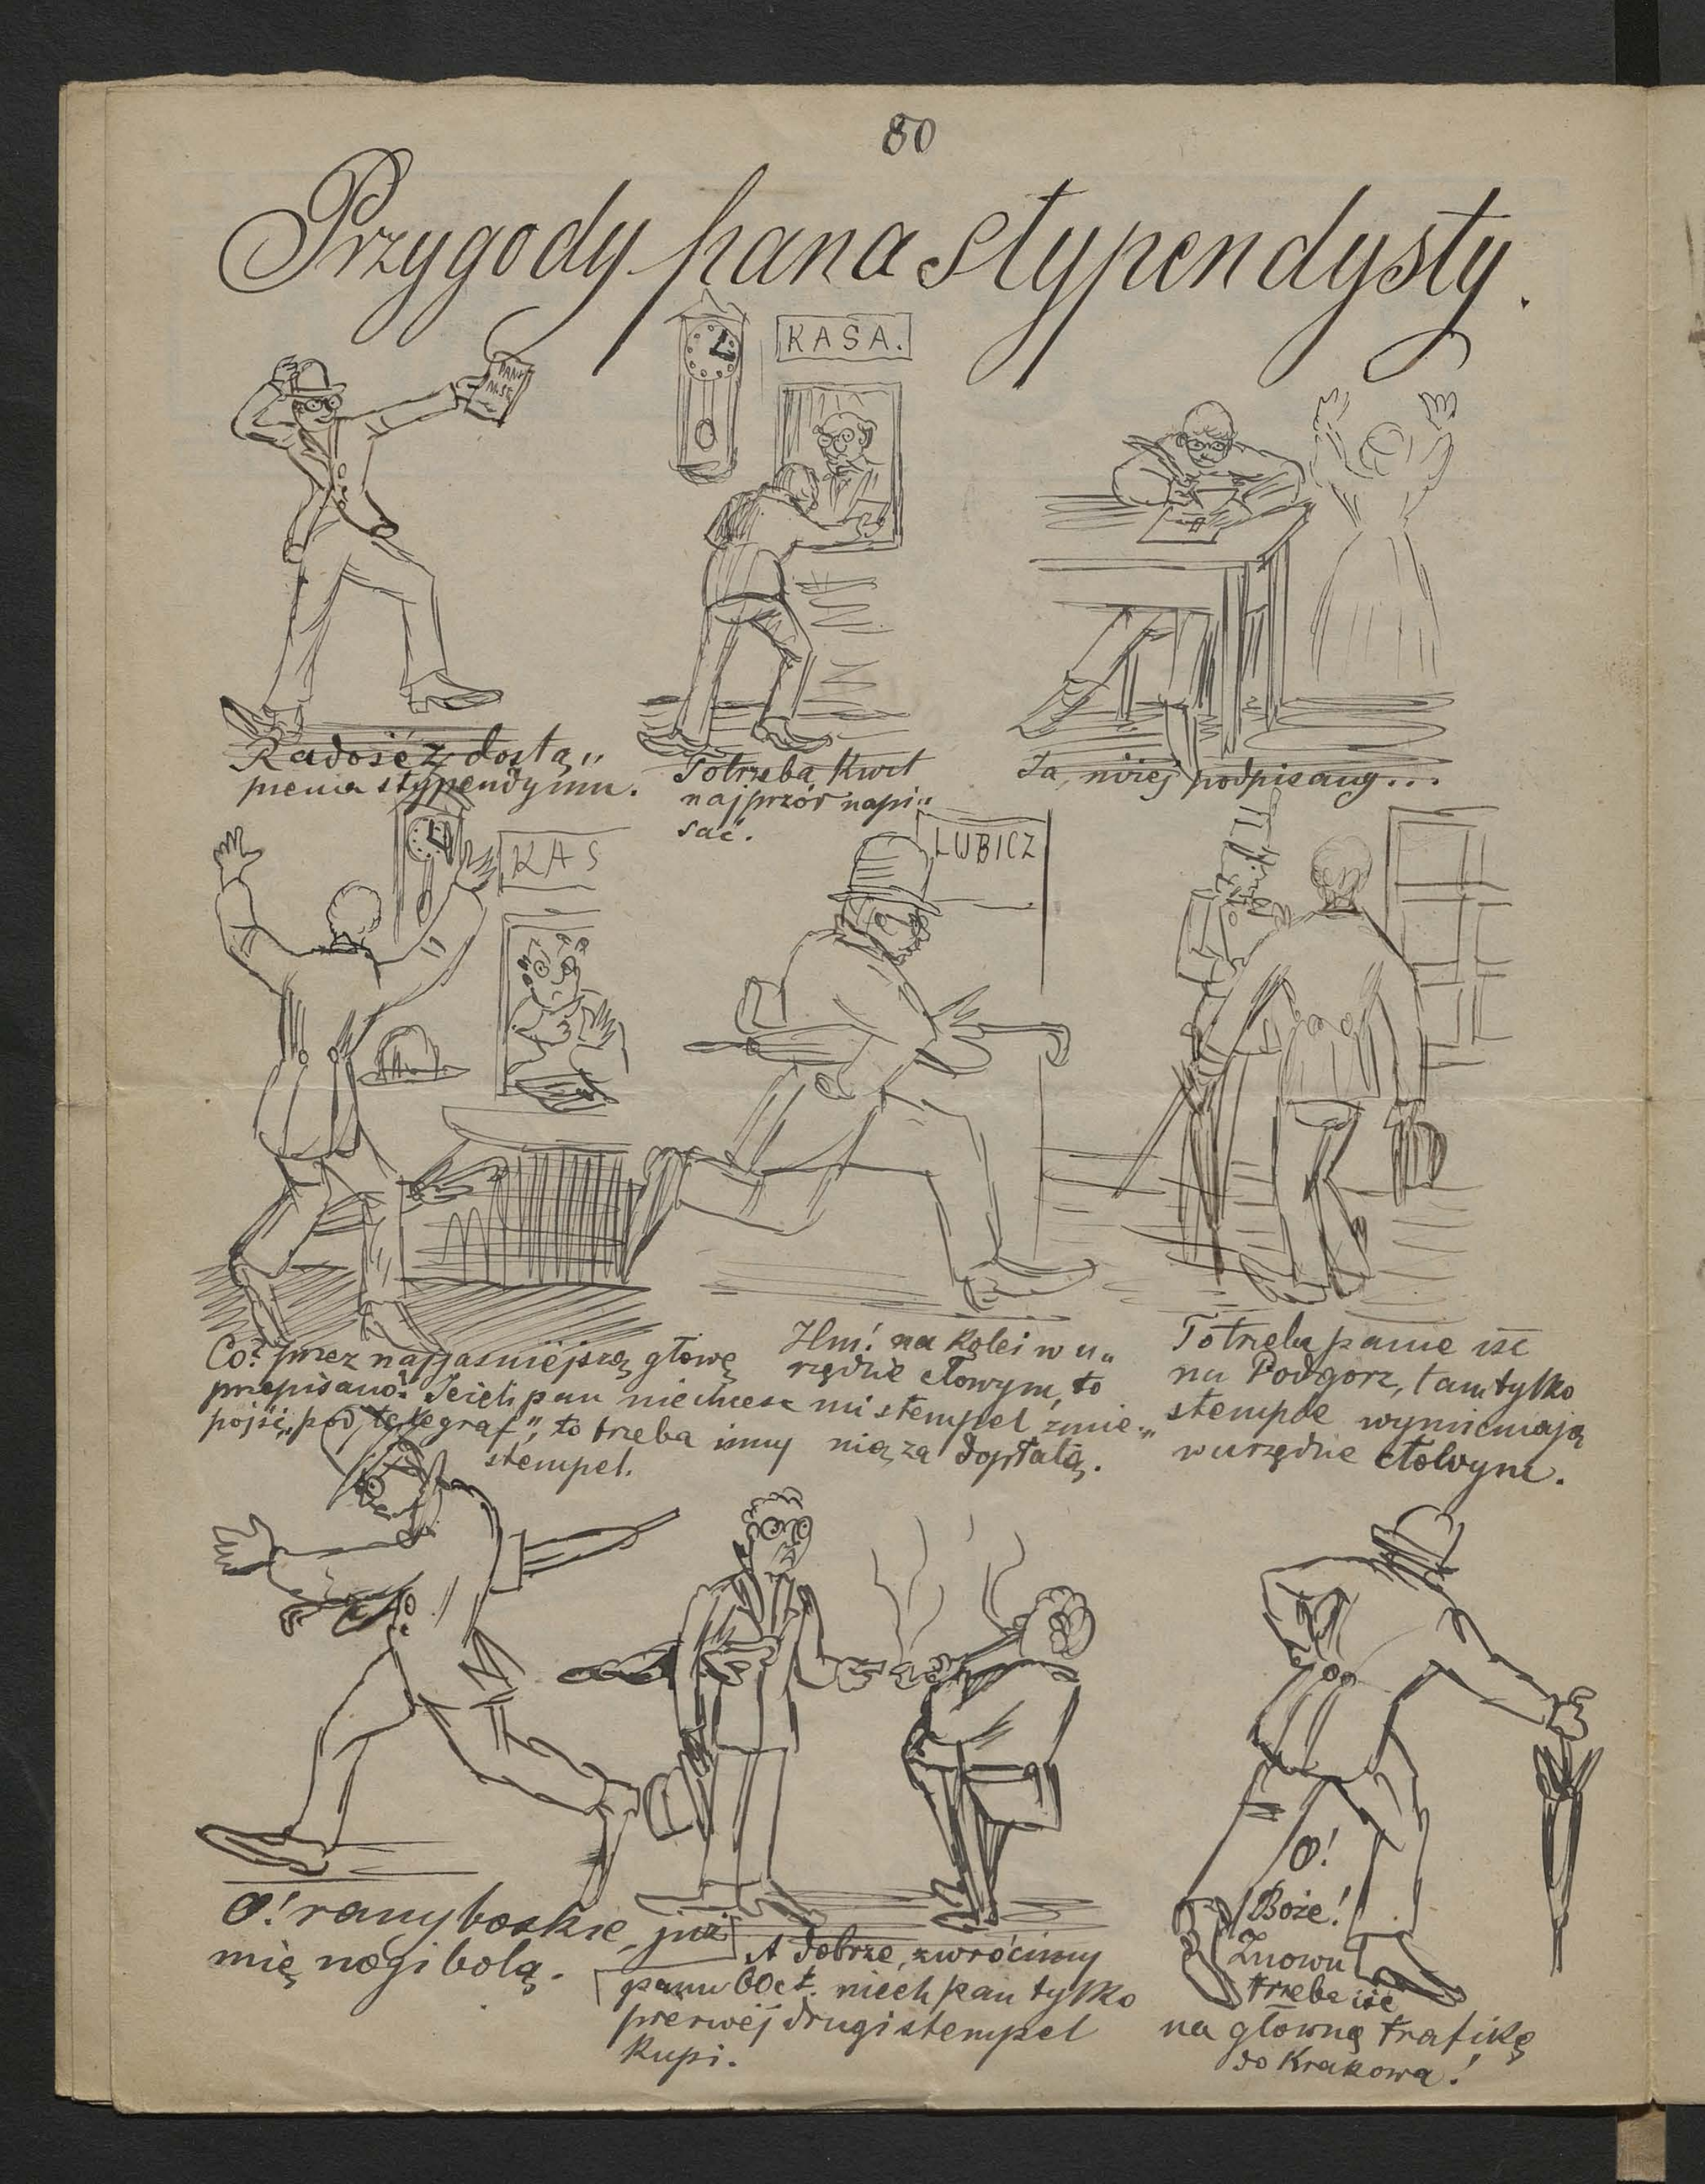 80
Przygody pana stypendysty.
KASA.
Radość z dostą„
pienia stypendyum.
Potrzeba kwit
najprzód napi„
sać.
Ja, niżej podpisany...
KAS
LUBICZ
Co? przez najjaśniejszą głowę
przepisano? Jeżeli pan nie chcesz
pójść „pod telegraf”, to trzeba inny
stempel.
Hm! na kolei w u„
rzędzie cłowym, to
mi stempel zmie„
nią za dopłatą.
Potrzeba panie iść
na Podgórz, tam tylko
stemple wymieniają
w urzędzie cłowym.
O! rany boskie, już
mię nogi bolą.
A dobrze, zwrócimy
panu 60 ct. niech pan tylko
pierwéj drugi stempel
kupi.
O!
Boże!
Znowu
trzeba iść
na główną trafikę
do Krakowa!